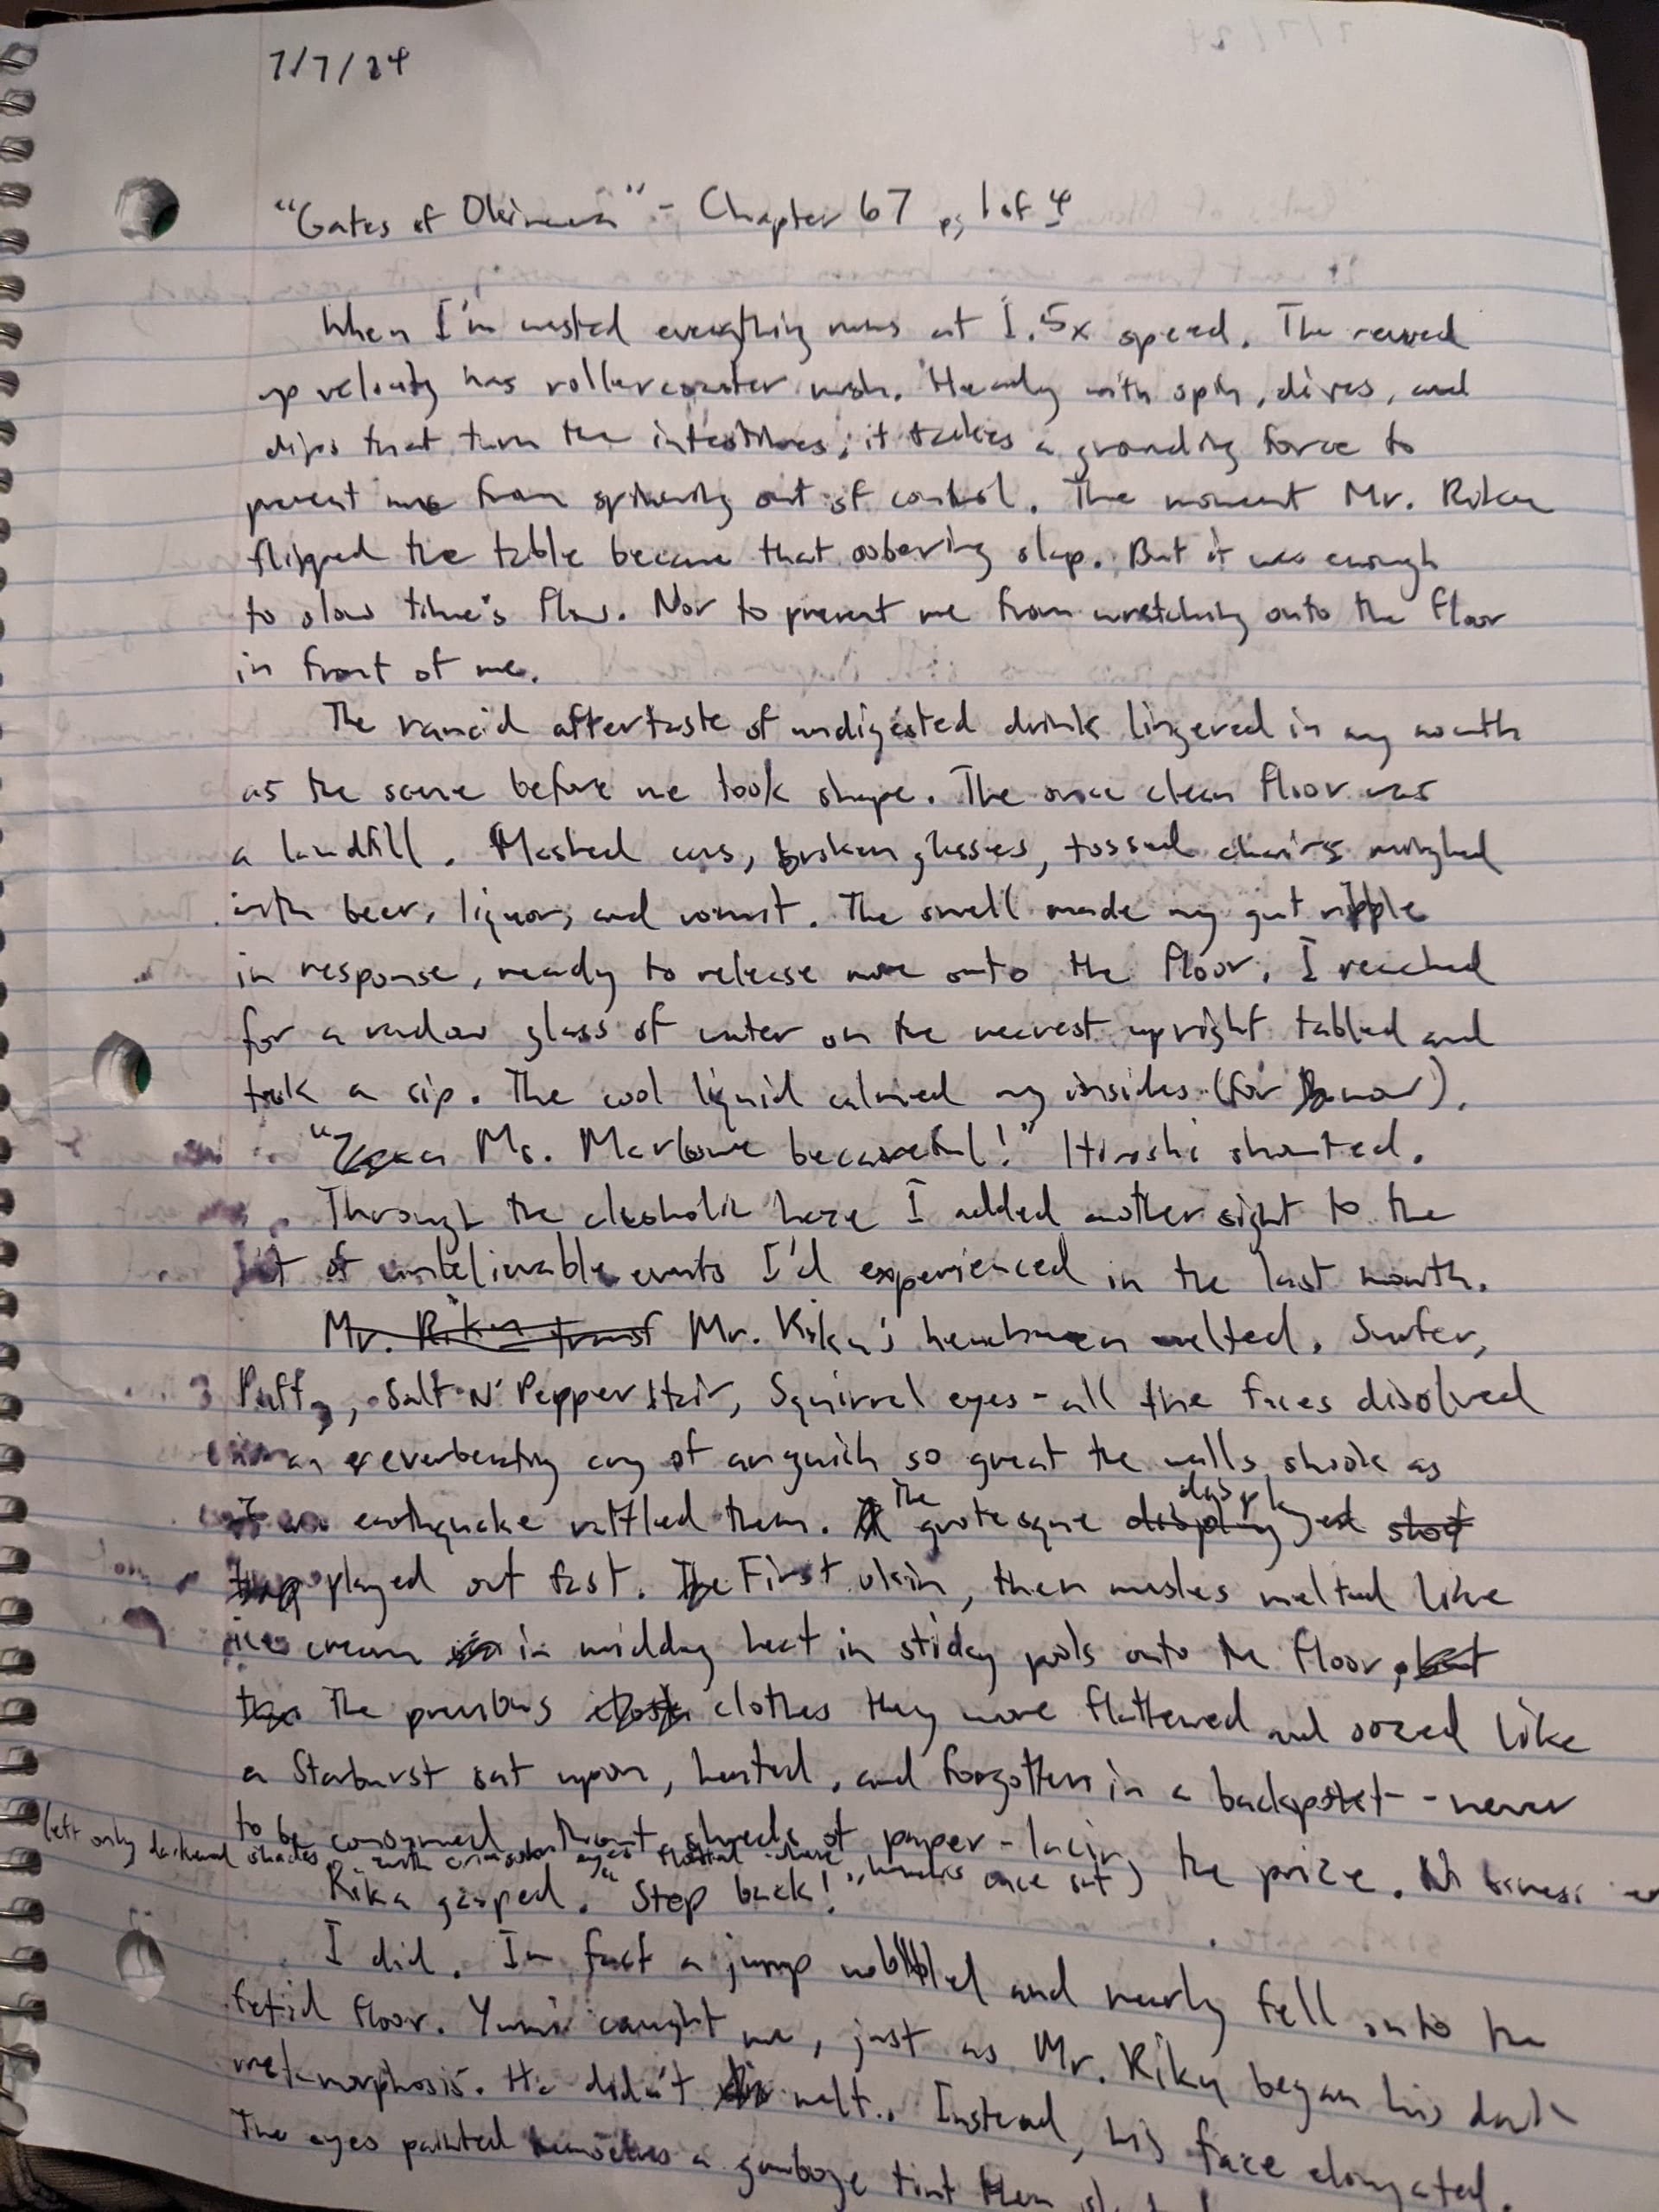 7/7/24
"Gates of Okinawa" - Chapter 67 pg 1 of 4
When I'm wasted everything runs at 1.5x speed. The revved
up velocity has rollercoaster rush. Heady with spin, dives, and
dips that turn the intestines, it takes a grounding force to
prevent me from spinning out of control. The moment Mr. Riku
flipped the table became that sobering slap. But it was enough
to slow time's flow. Nor to prevent me from wretching onto the floor
in front of me.
The rancid aftertaste of undigested drink lingered in my mouth
as the scene before me took shape. The once clean floor was
a landfill. Mashed broken glasses, tossed chairs mingled
with beer, liquor, and vomit. The smell made my gut ripple
in response, ready to release more onto the floor. I reached
for a random glass of water on the nearest upright tabled and
took a sip. The cool liquid calmed my insides (for now).
Ms. Marlowe becareful!" Hiroshi shouted.
Through the alcoholic haze I added another sight to the
list of unbelievable events I'd experienced in the last month.
Mr. Riku transf Mr. Riku's henchmen melted. Surfer,
Puffy, Salt N' Pepper Hair, Squirrel eyes - all the faces disolved
in a reverberating cry of anguish so great the walls shook as
if an earthquake rattled them. The grotesque display
played out fast. First skin, then muscles melted like
ice cream in midday heat in sticky pools onto the floor,
The previous clothes they wore flattened and oozed like
a Starburst sat upon, heated, and forgotten in a backpocket - never
to be consumed shreds of paper - lacing the prize.
left only darkened shades with crimson eyes floated where once sat
Rika gasped. "Step back!"
I did. In fact a jump wobbled and nearly fell onto the
fetid floor. Yumi caught me, just as Mr. Riku began his dark
metamorphosis. He didn't melt. Instead, his face elongated.
The eyes painted themselves a gamboge tint then